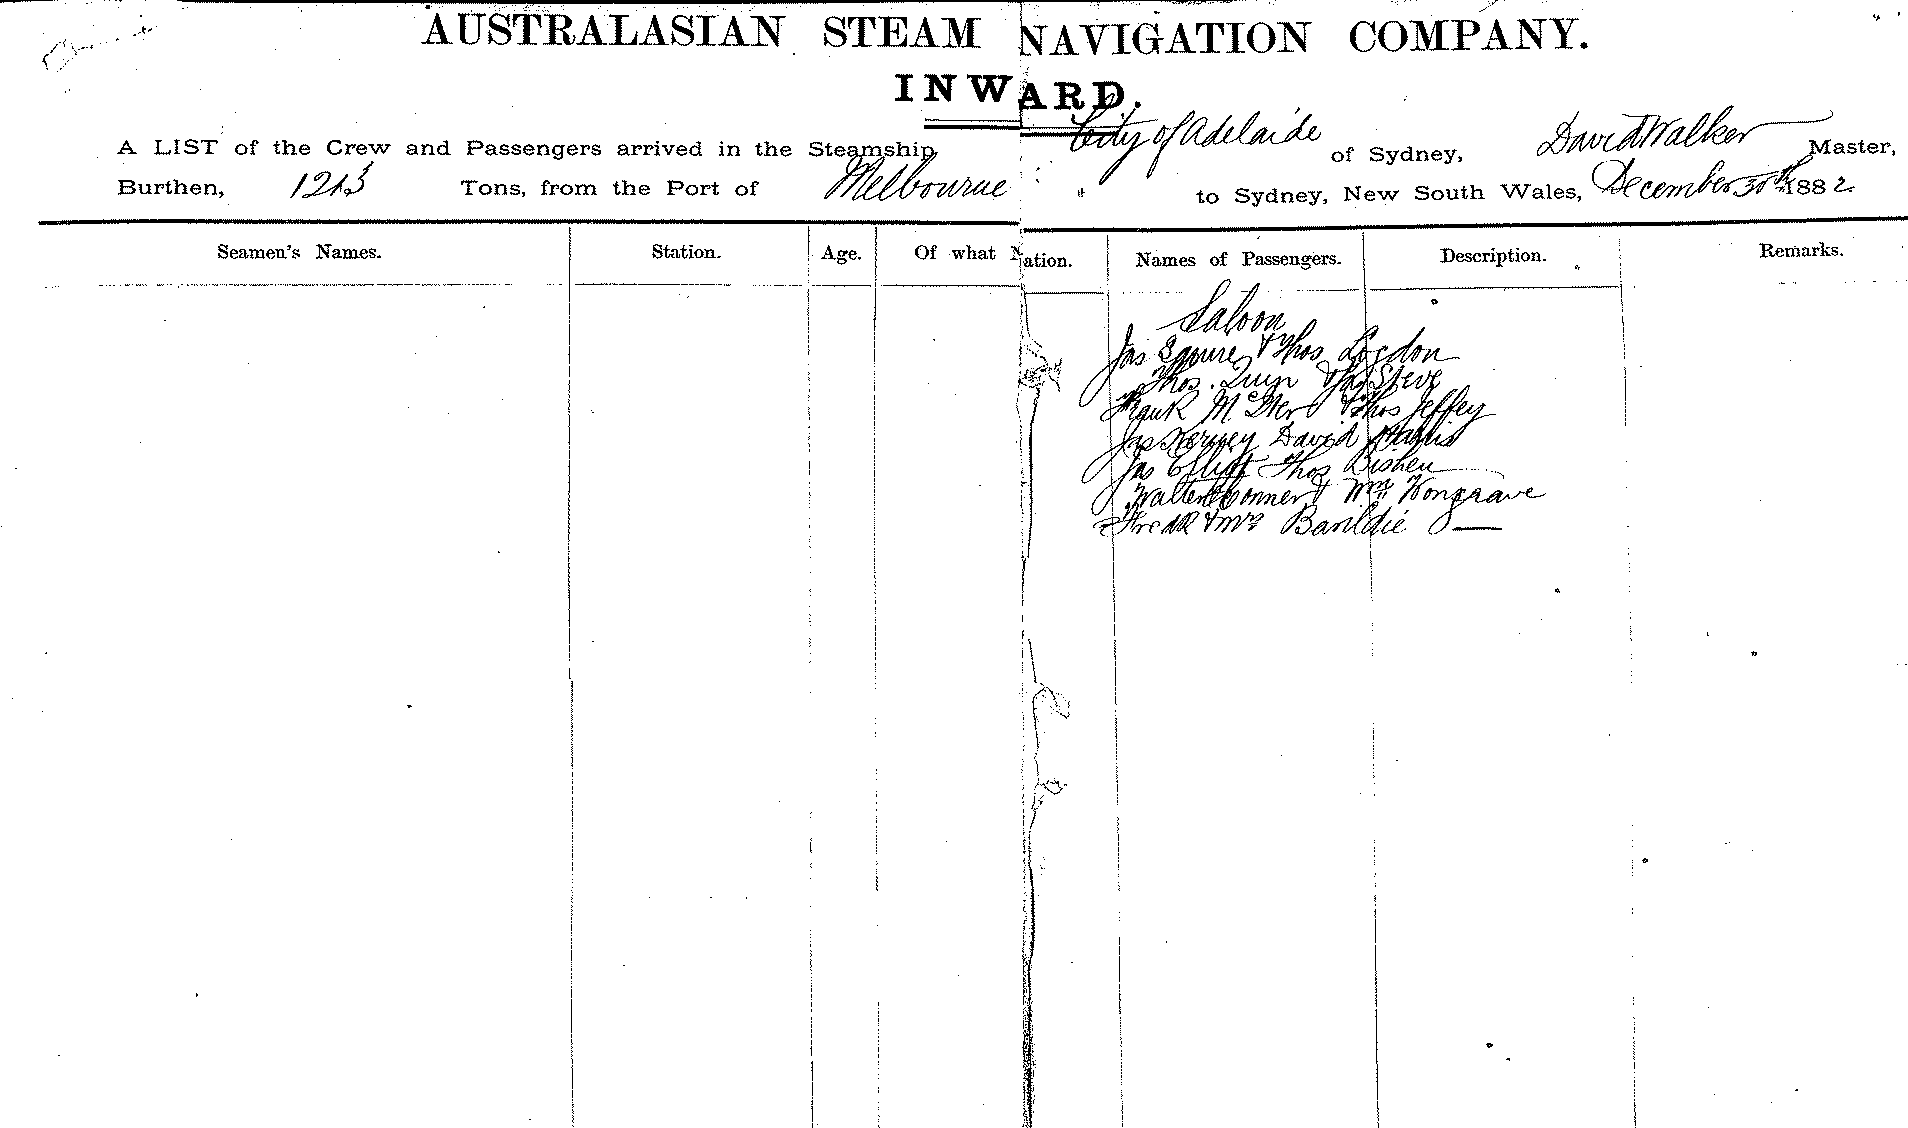 AUSTRALASIAN STEAM NAVIGATION COMPANY.
INWARD.
A LIST of the Crew and Passengers arrived in the Steamship City of Adelaide of Sydney, David Walker Master,
Burthen, 1213 Tons, from the Port of Melbourne to Sydney, New South Wales, December 30th 1882
Seamen's Names. Station. Age. Of what Nation. Names of Passengers. Description. Remarks.
Saloon
Jas Squire & Thos Logdon
Thos. Quin & Jas Steve
Frank & Thos Jeffey
Jas David
Jas Elliott Thos
Walter Conner & Wm Kongrave
Fredk & Mrs